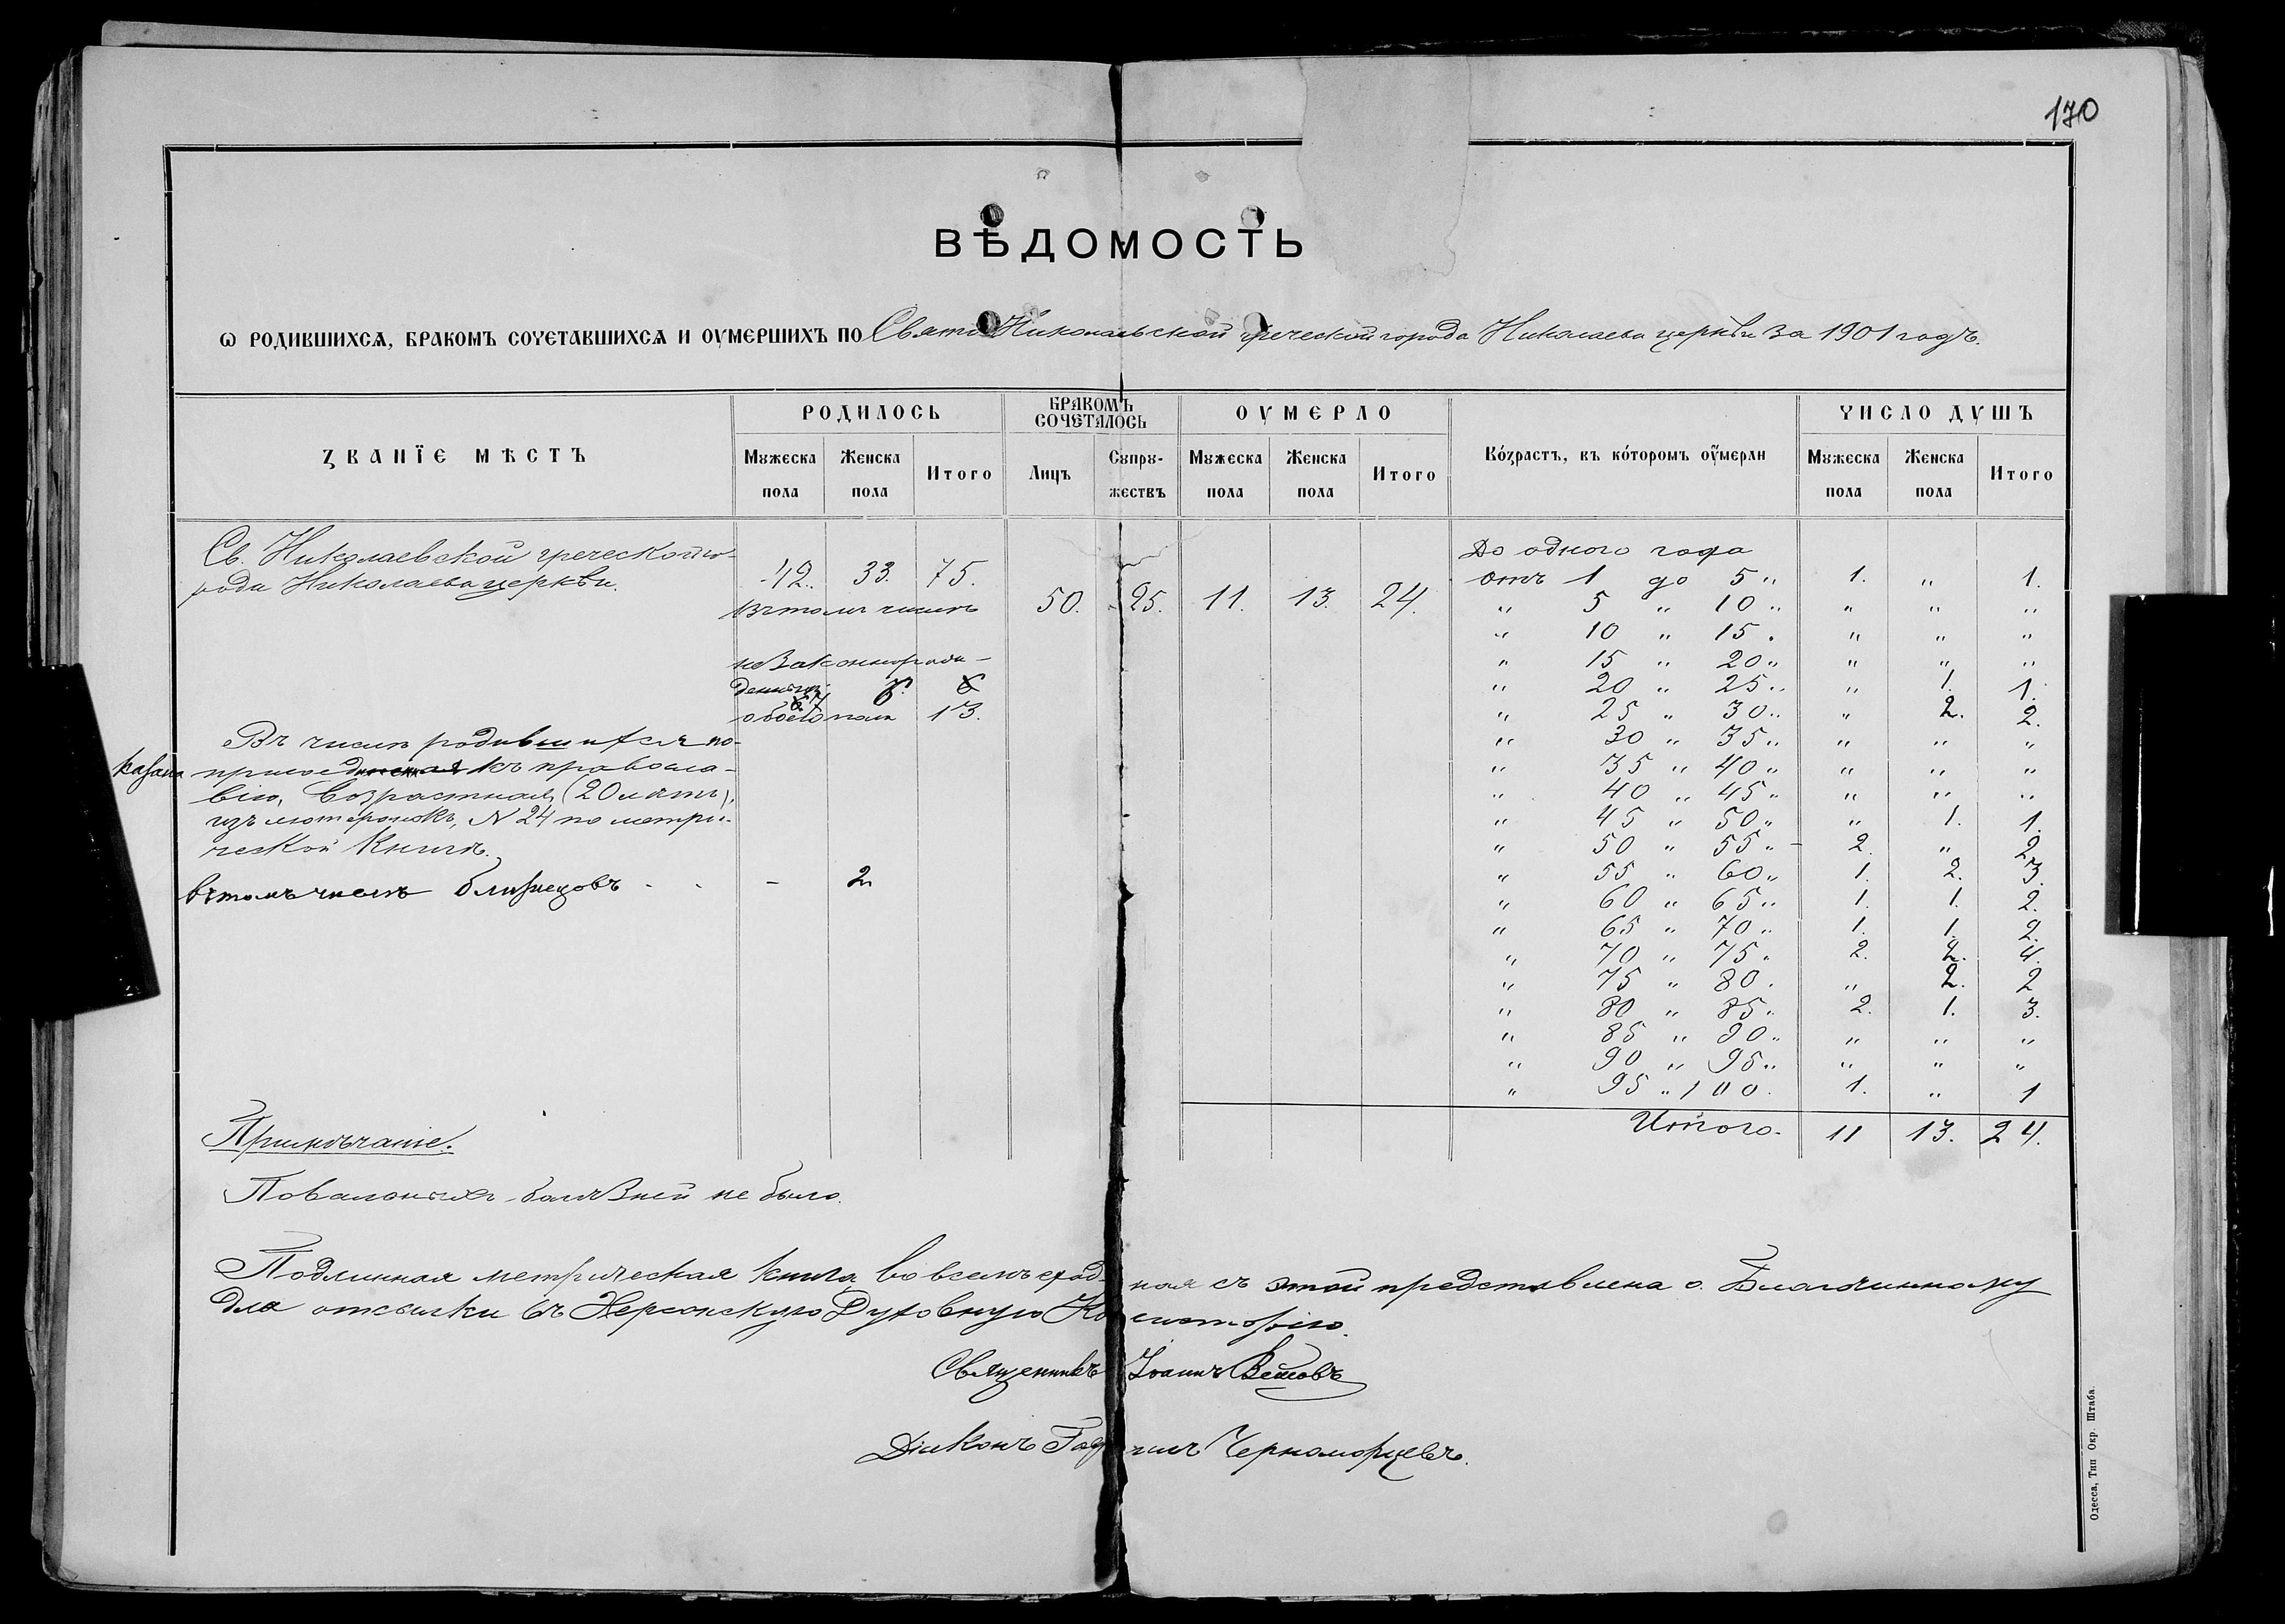 170
ВѢДОМОСТЬ
Ѡ РОДИВШИХСѦ, БРАКОМЪ СОЧЕТАВШИХСѦ И ОУМЕРШИХЪ ПО Свято Николаевской греческой города Николаева церкви за 1901 годъ.
ЗВАНЇЕ МѢСТЪ
РОДИЛОСЬ
БРАКОМЪ СОЧЕТАЛОСЬ
ОУМЕРЛО
Во́зрастъ, въ ко́торомъ оу҆мерли
ЧИСЛО ДУШЪ
Мужеска пола Женска пола Итого Лицъ Супружествъ Мужеска пола Женска пола Итого Мужеска пола Женска пола Итого
Св. Николаевской греческой го-
рода Николаева церкви.
42. 33. 75.
50. 25. 11. 13. 24.
Въ томъ числѣ
незаконнорож-
денныхъ
обоего пола 13.
Въ числѣ родившихся по-
казана присоединенная къ правосла-
вію, возрастная (20 лѣтъ),
изъ лютеранокъ, N 24 по метри-
ческой книгѣ.
въ томъ числѣ близнецовъ - - - 2
До одного года
отъ 1 до 5 „ 1. „ 1.
„ 5 „ 10 „ „ „ „
„ 10 „ 15 . „ „ „
„ 15 „ 20 „ „ „ „
„ 20 „ 25 „ „ 1. 1.
„ 25 „ 30 „ „ 2. 2.
„ 30 „ 35 „ „ „ „
„ 35 „ 40 „ „ „ „
„ 40 „ 45 „ „ „ „
„ 45 „ 50 „ „ 1. 1.
„ 50 „ 55 „ - 2. „ 2
„ 55 „ 60 „ 1. 2. 3.
„ 60 „ 65 „ 1. 1. 2.
„ 65 „ 70 „ 1. 1. 2.
„ 70 „ 75 „ 2. 2. 4.
„ 75 „ 80 . „ 2. 2
„ 80 „ 85 „ 2. 1. 3.
„ 85 „ 90 „ „ „ „
„ 90 „ 95 „ „ „ „
„ 95 „ 100 . 1. „ 1
Итого. 11 13. 24.
Примѣчаніе.
Повальныхъ болѣзней не было.
Подлинная метрическая книга во всемъ сходная съ этой представлена о. Благочинному
для отсылки въ Херсонскую Духовную Консисторію.
Священникъ Іоаннъ
Діаконъ Черноморцевъ.
Одесса, Тип Окр. Штаба.